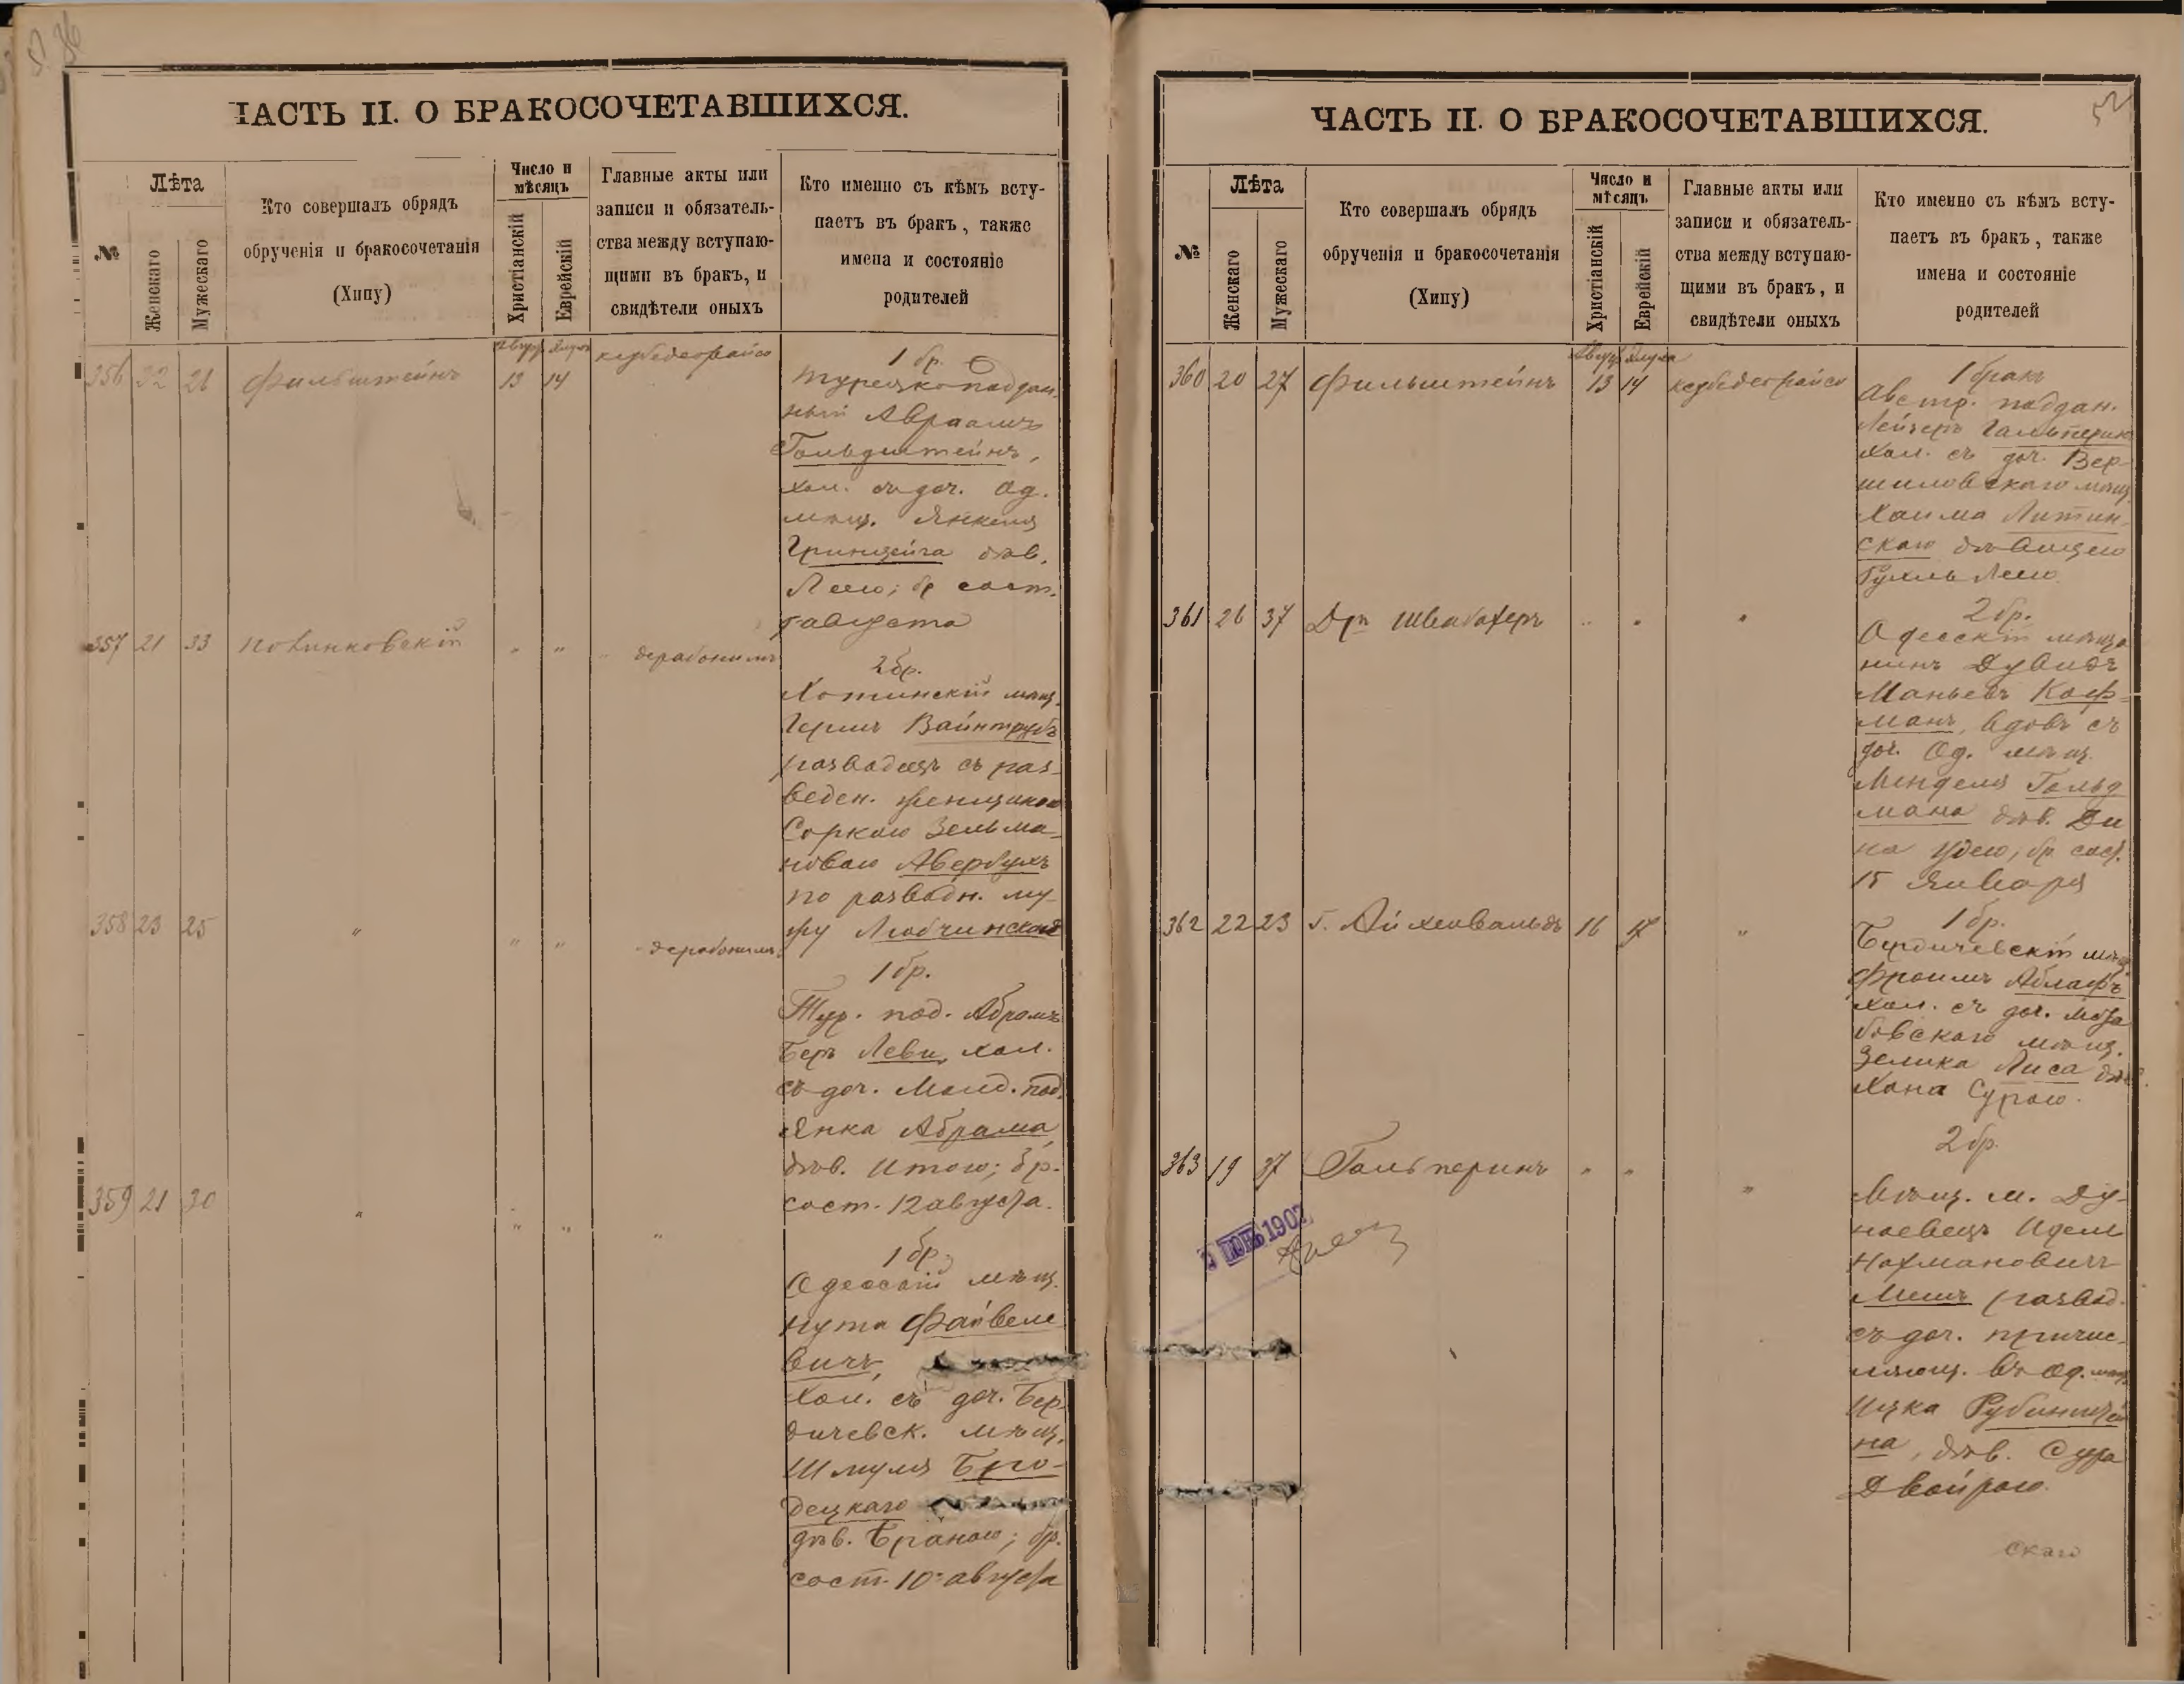 ЧАСТЬ II. О БРАКОСОЧЕТАВШИХСЯ.
№
Лѣта
Женскаго
Мужескаго
Кто совершалъ обрядъ
обрученія и бракосочетанія
(Хипу)
Число и
мѣсяцъ
Христіанскій
Еврейскій
Главные акты или
записи и обязатель-
ства между вступаю-
щими въ бракъ, и
свидѣтели оныхъ
Кто именно съ кѣмъ всту-
паетъ въ бракъ, также
имена и состояніе
родителей
356 22 21 Фильштейнъ 13 14
1 бр.
Турецкоподдан-
ный Авраамъ
Гольдштейнъ,
хол. съ доч. Од.
мѣщ. Янкеля
дѣв.
Леею; бр сост.
августа
357 21 33 Повинковскій " "
2 бр.
Хотинскій мѣщ.
Герш Вайнтрубъ
разводецъ съ раз-
веден. женщиною
Соркою Зельма-
новою Авербухъ
по разводн. му-
жу Любчинской
358 23 25 " " "
1 бр.
Тур. под. Абрамъ
Беръ Леви, хол.
съ доч. Молд. под.
Янка Абрама,
дѣв. Итою; бр.
сост. 12 августа.
359 21 30 " " " "
1 бр.
Одесскій мѣщ.
Нута Файвеле-
вичъ,
хол. съ доч. Бер-
дичевск. мѣщ.
Шмуля Бро-
децкаго
дѣв. Браною; бр.
сост. 10 августа
ЧАСТЬ II. О БРАКОСОЧЕТАВШИХСЯ.
52
№
Лѣта
Женскаго
Мужескаго
Кто совершалъ обрядъ
обрученія и бракосочетанія
(Хипу)
Число и
мѣсяцъ
Христіанскій
Еврейскій
Главные акты или
записи и обязатель-
ства между вступаю-
щими въ бракъ, и
свидѣтели оныхъ
Кто именно съ кѣмъ всту-
паетъ въ бракъ, также
имена и состояніе
родителей
360 20 27 Фильштейнъ 13 14
1 бракъ
Австр. поддан.
Лейзеръ Гальперинъ
хол. съ доч. Вер-
шиловскаго мѣщ.
Хаима Литин-
скаго дѣвицею
Рухль Леею.
361 26 37 Дръ Швабахеръ " " "
2 бр.
Одесскій мѣща
нинъ Дувидъ
Маньевъ Коф-
манъ, вдовъ съ
доч. Од. мѣщ.
Менделя Гольд
мана дѣв. Ди
на Удею, бр. сост.
15 января
362 22 23 Г. Айхенвальдъ 16 17 "
1 бр.
Бердичевскій мѣщ
Фроимъ Аблафъ
хол. съ доч.
мѣщ.
Зелика Лиса дѣв.
Хана Сурою.
363 19 37 Гальперинъ " " "
2 бр.
Мѣщ. м. Ду-
наевецъ Идель
Нахмановичъ
развод.
съ доч. причис-
ляющ. въ Од. мѣщ.
Ицка Рубинштей
на, дѣв. Сура
Двойрою.
скаго